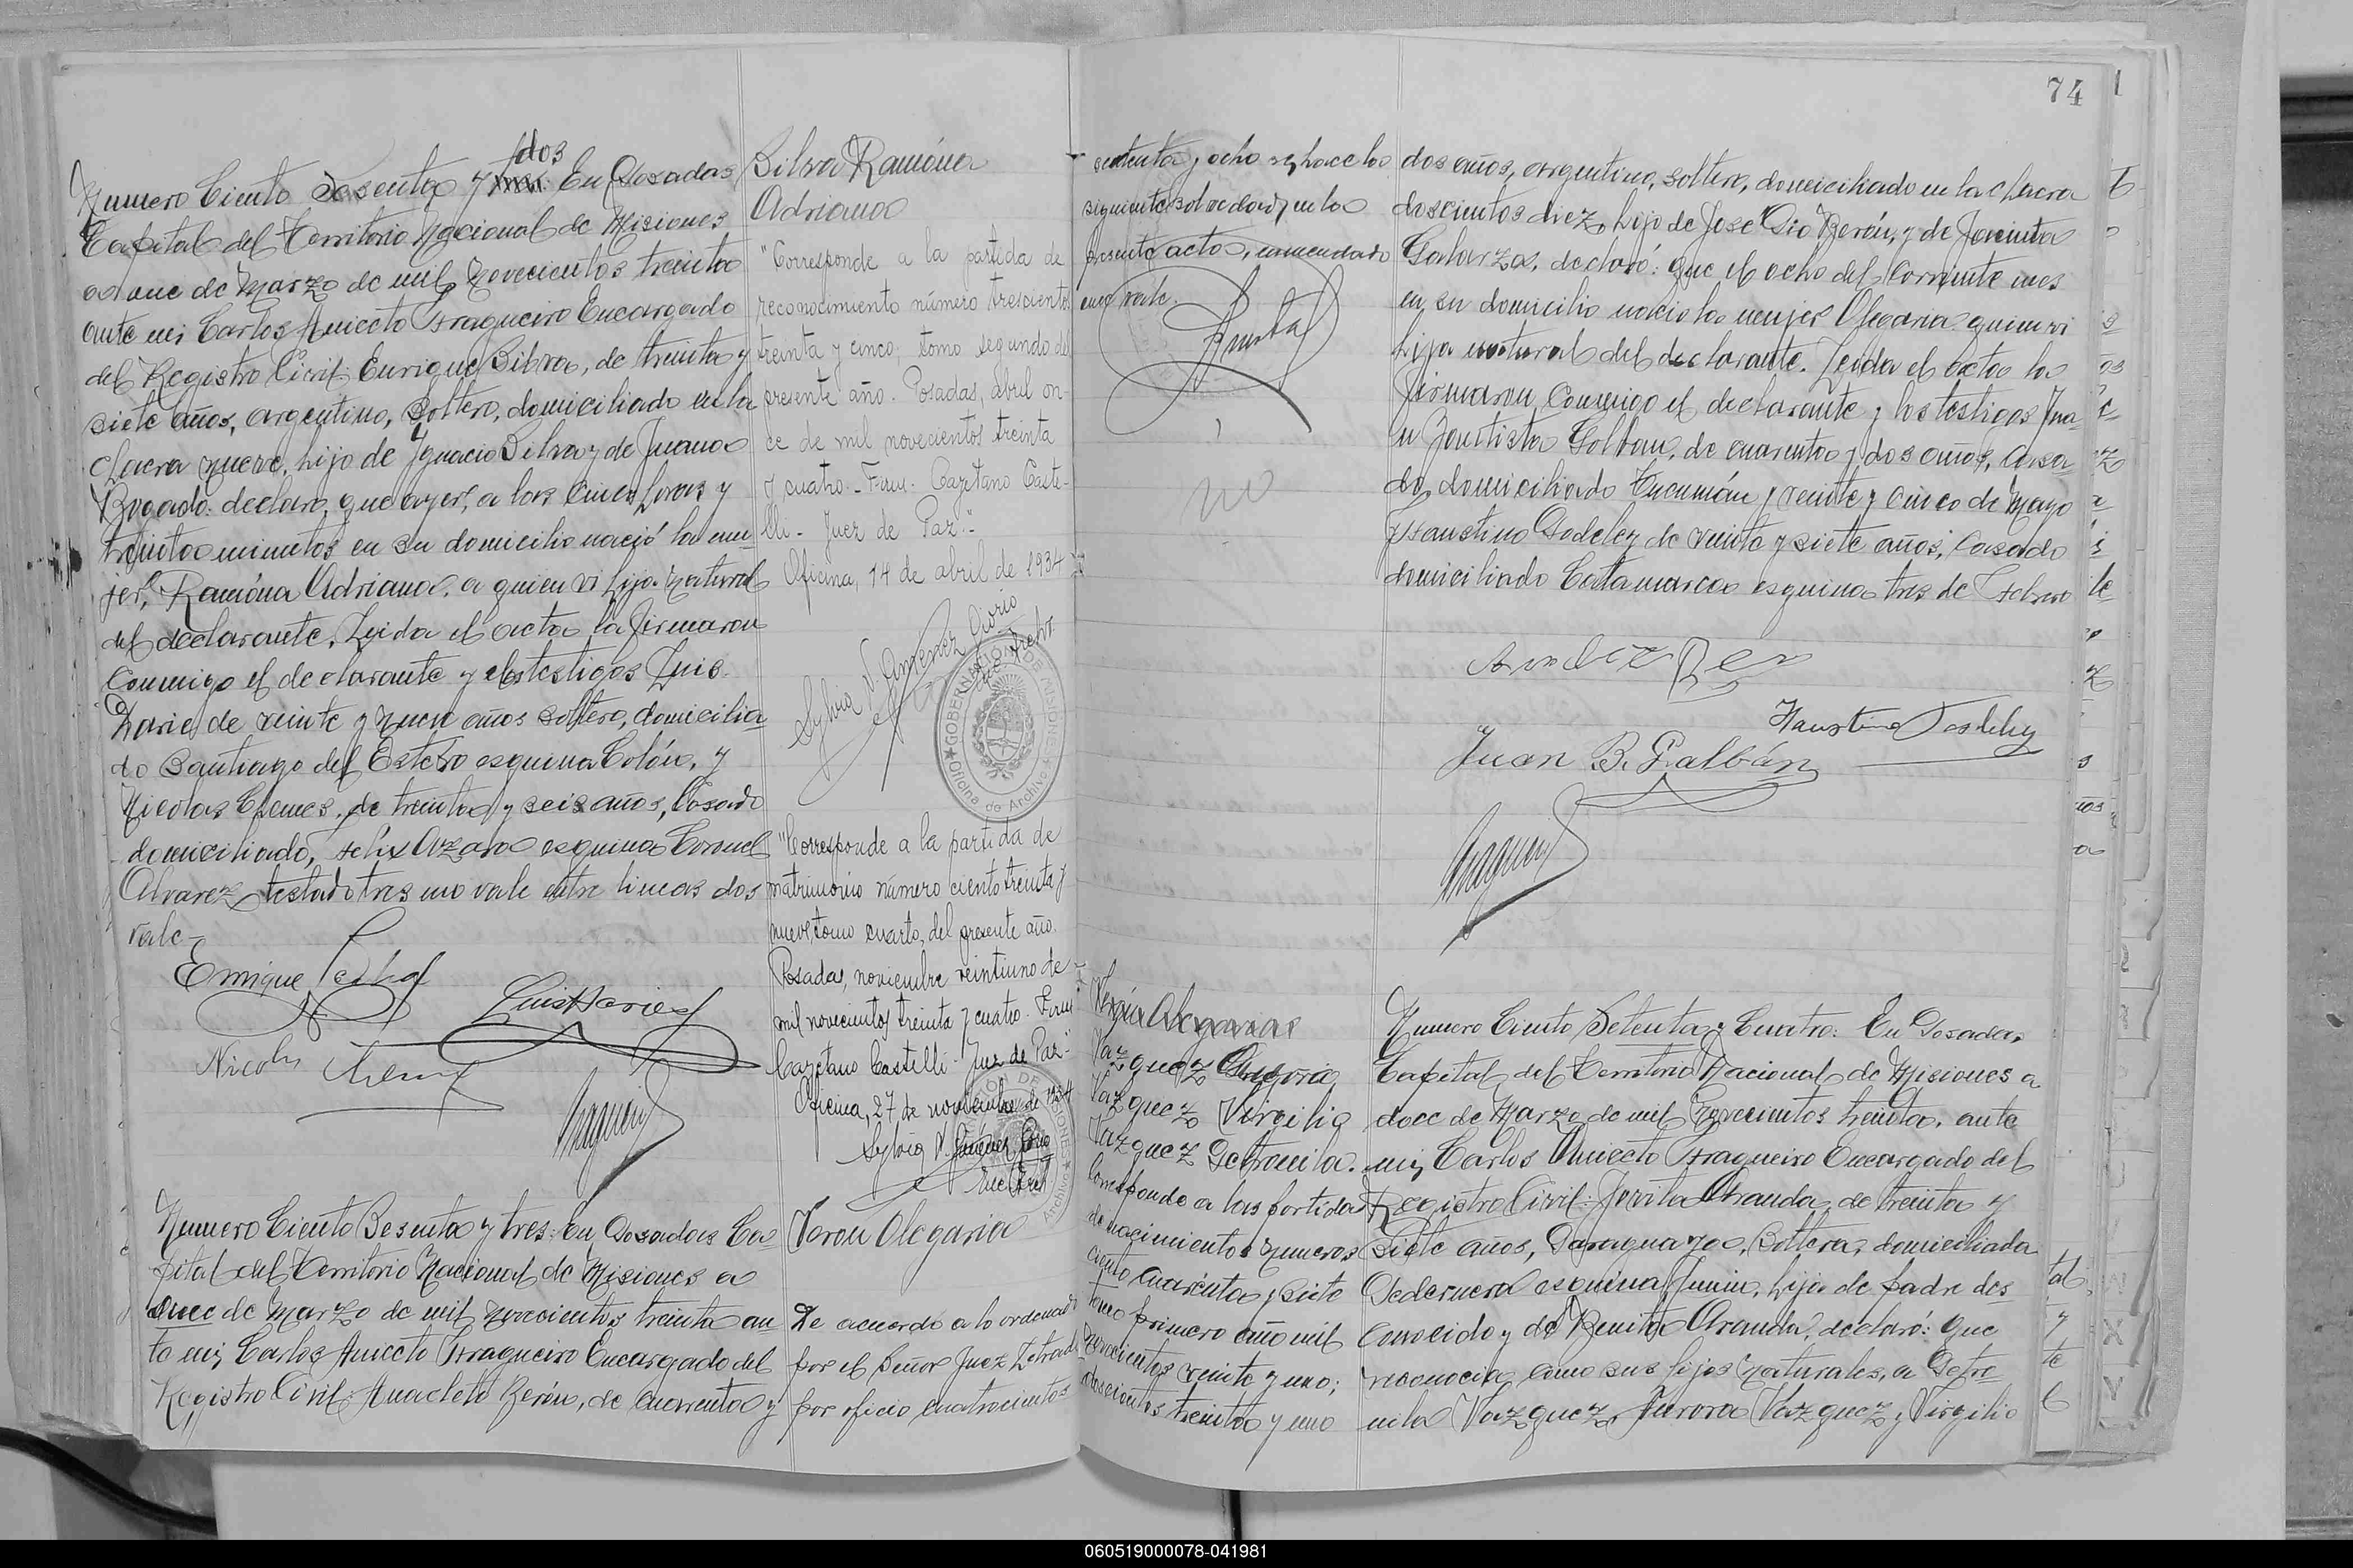 Numero Ciento Sesenta y tres. En Posadas
dos
Capital del Territorio Nacional de Misiones
a once de Marzo de mil novecientos treinta
ante mi Carlos Aniceto Fragueiro Encargado
del Registro Civil: Enrique Silva, de treinta y
siete años, argentino, soltero, domiciliado en la
chacra nueve, hijo de Ygnacio Silva y de Juana
Bogado: declaro, que ayer, a las cinco horas y
treinta minutos en su domicilio nació la mu
jer, Ramóna Adriana, a quien vi hija natural
del declarante. Leida el acta la firmaron
conmigo el declarante y los testigos Luis
de veinte y nueve años soltero, domicilia
do Santiago del Estero esquina Colón, y
Nicolas Chemes, de treinta y seis años, Casado
domiciliado, Felix Azara esquina Coronel
Alvarez, testado tres no vale entre lineas dos
vale-
Enrique Silva
Nicolas Chemes
Silva Ramóna
Adriana
"Corresponde a la partida de
reconocimiento número trescientos
treinta y cinco, tomo segundo del
presente año. Posadas, abril on-
ce de mil novecientos treinta
y cuatro.- Firm. Cayetano Caste-
lli - Juez de Paz".-
Oficina, 14 de abril de 1934
GOBERNACION DE MISIONES
Oficina de Archivo
"Corresponde a la partida de
matrimonio número ciento treinta y
nueve, tomo cuarto, del presente año.
Posadas, noviembre veintiuno de
mil novecientos treinta y cuatro. Firm.
Cayetano Castelli - Juez de Paz".-
Oficina, 27 de noviembre de 1934
Numero Ciento Sesenta y tres: En Posadas Ca-
pital del Territorio Nacional de Misiones a
once de Marzo de mil novecientos treinta an
te mi Carlos Aniceto Fragueiro Encargado del
Registro Civil: Anacleto Berón, de cuarenta y
Veron Olegaria
De acuerdo a lo ordenado
por el Señor Juez Letrado
por oficio cuatrocientos
74
setenta y ocho se hace la
siguiente salvedad, en la
presente acta, enmendado
once vale.
dos años, argentino, soltero, domiciliado en la chacra
doscientos diez, hijo de José Pio Berón, y de Jacinta
Galarza, declaró: que el ocho del corriente mes
en su domicilio nació la mujer Olegaria quien vi
hija natural del declarante. Leida el acta la
firmaron Conmigo el declarante y los testigos Jua-
n Bautista Galban, de cuarenta y dos años, casa
do, domiciliado Tucumán y veinte y cinco de Mayo
Faustino Godeley de veinte y siete años, Casado
domiciliado Catamarca esquina tres de Febrero
Juan B. Galbán
Vazquez Virgilio
Vazquez Petronila.
Corresponde a las partidas
de nacimientos numeros
ciento cuarenta y siete
tomo primero año mil
novecientos veinte y uno;
doscientos treinta y uno
Numero Ciento Setenta y Cuatro: En Posadas,
Capital del Territorio Nacional de Misiones a
doce de Marzo de mil novecientos treinta, ante
mi, Carlos Aniceto Fragueiro Encargado del
Registro Civil: Jovita Aranda, de treinta y
siete años, Paraguaya, Soltera, domiciliada
Pedernera esquina Junin, hija de padre des
conocido y de Benita Aranda, declaró: que
reconocia como sus hijos naturales, a Petro
nila Vazquez, Aurora Vazquez y Virgilio
060519000078-041981